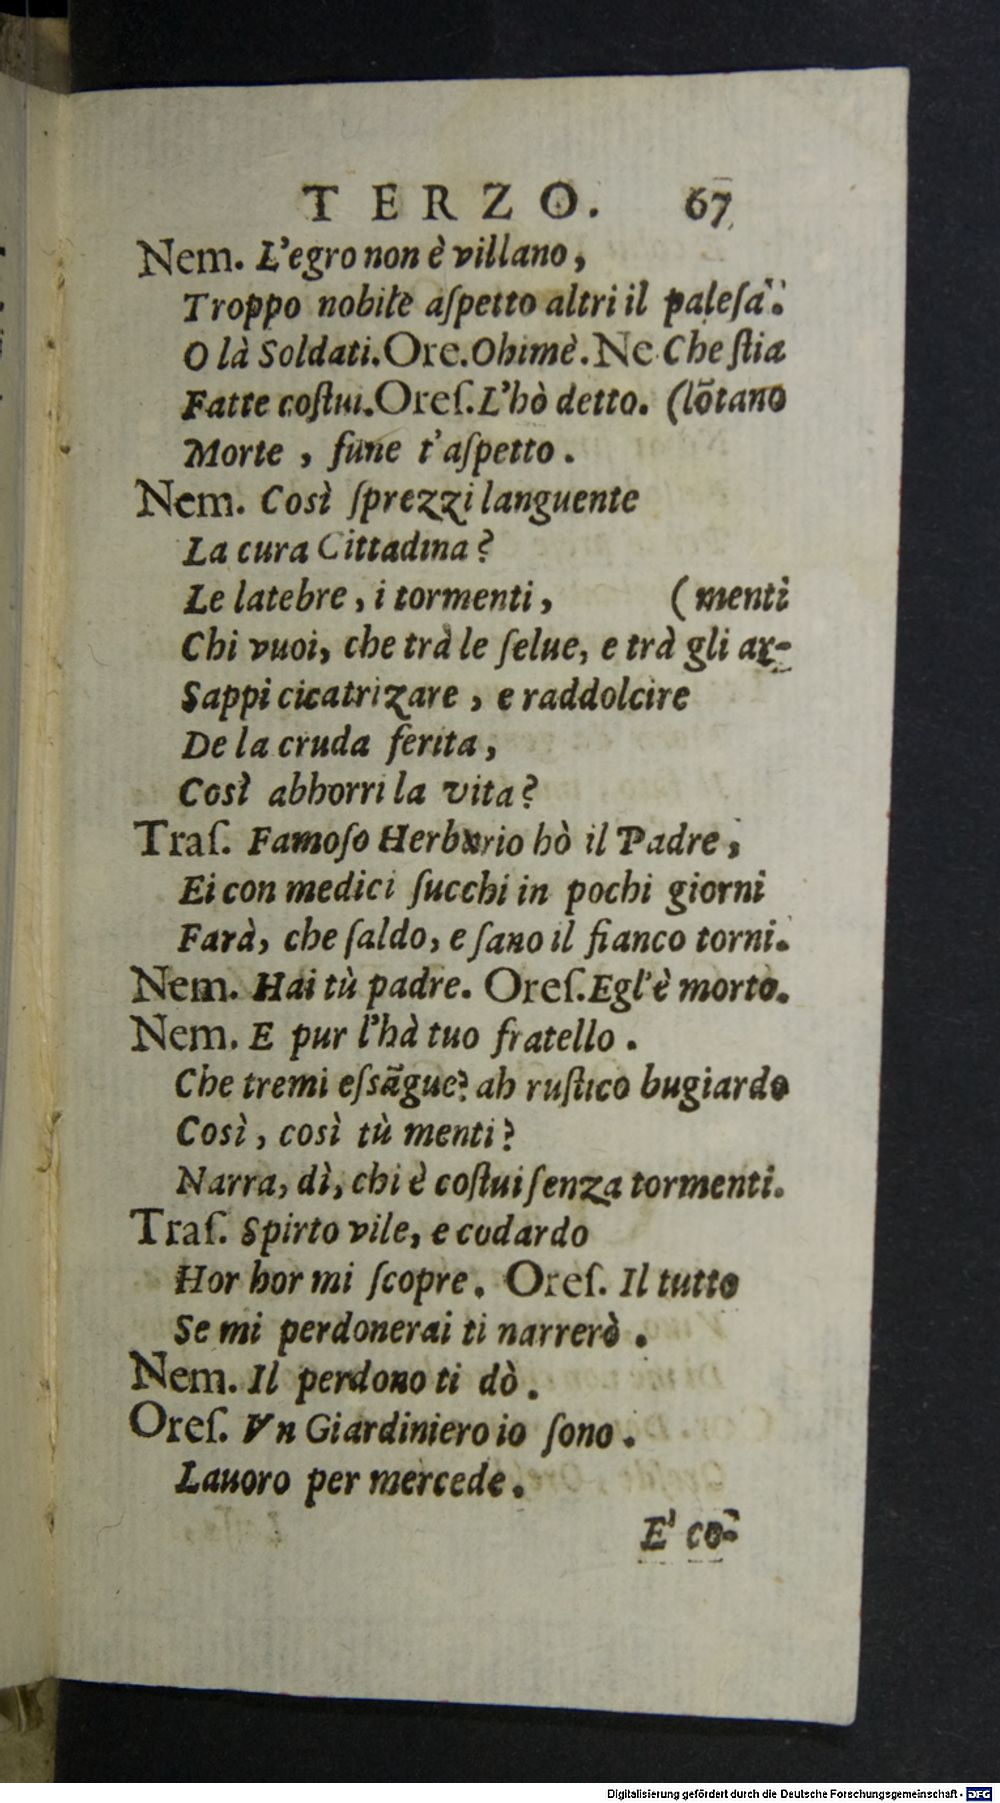 TERZO. 67
Nem. L'egro non è villano,
Troppo nobile aſpetto altri il paleſa:
O là Soldati. Ore. Ohimè. Ne Che ſtia
Fatte coſtui. Oreſ. L'hò detto. (lõtano
Morte, fune t'aſpetto.
Nem. Così ſprezzi languente
La cura Cittadina?
Le latebre, i tormenti, (menti
Chi vuoi, che trà le ſelue, e trà gli ar-
Sappi cicatrizare, e raddolcire
De la cruda ferita,
Così abhorri la vita?
Traſ. Famoſo Herbario hò il Padre,
Ei con medici ſucchi in pochi giorni
Farà, che ſaldo, e ſano il fianco torni.
Nem. Hai tù padre. Oreſ. Egl'è morto.
Nem. E pur l'hà tuo fratello.
Che tremi eſsãgue? ah ruſtico bugiardo
Così, così tù menti?
Narra, dì, chi è coſtui ſenza tormenti.
Traſ. Spirto vile, e codardo
Hor hor mi ſcopre. Oreſ. Il tutto
Se mi perdonerai ti narrerò.
Nem. Il perdono ti dò.
Oreſ. Vn Giardiniero io ſono.
Lauoro per mercede.
E' co-
Digitalisierung gefördert durch die Deutsche Forschungsgemeinschaft - DFG